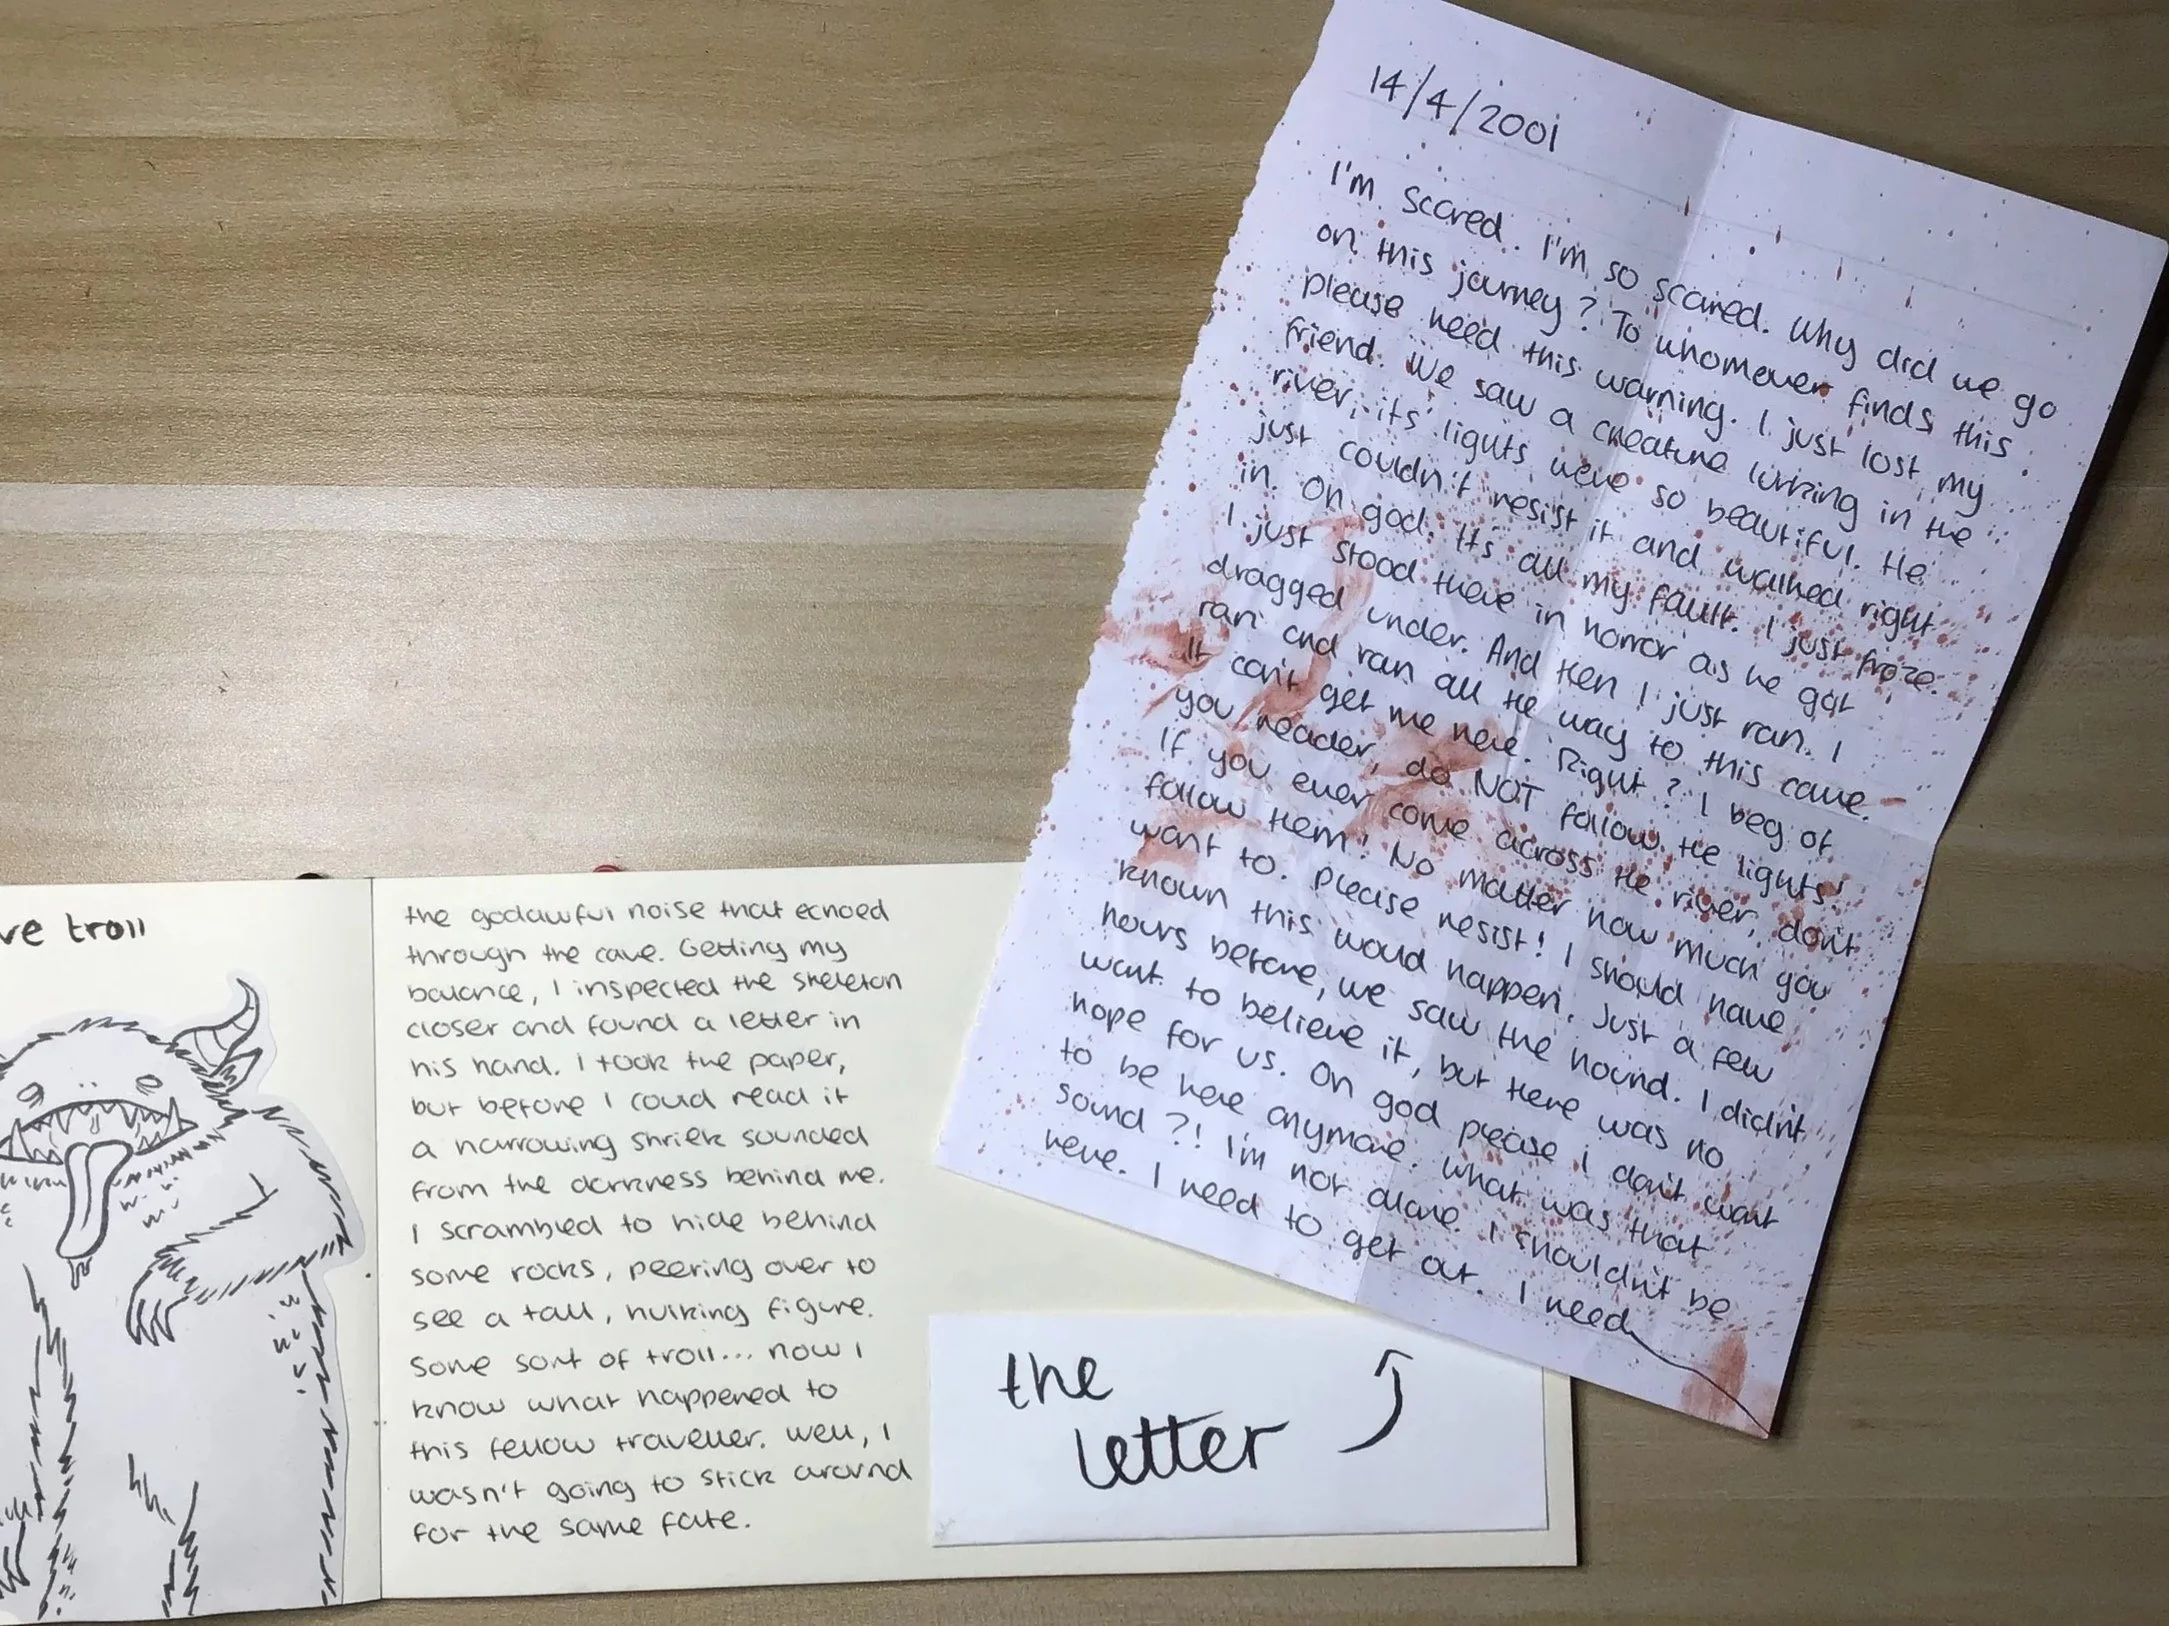 14/4/2001
I'm scared. I'm so scared. Why did we go
on this journey? To whomever finds this
please heed this warning. I just lost my
friend. We saw a creature lurking in the
river, its lights were so beautiful. He
just couldn't resist it and walked right
in. Oh god. Its all my fault. I just froze.
I just stood there in horror as he got
dragged under. And then I just ran. I
ran and ran all the way to this cave.
It can't get me here. Right? I beg of
you reader, do NOT follow the lights!
If you ever come across the river, don't
follow them! No matter how much you
want to. Please resist! I should have
known this would happen. Just a few
hours before, we saw the hound. I didn't
want to believe it, but there was no
hope for us. Oh god please i don't want
to be here anymore. What was that
sound?! I'm not alone. I shouldn't be
here. I need to get out. I need
ve troll
the godawful noise that echoed
through the cave. Getting my
balance, I inspected the skeleton
closer and found a letter in
his hand. I took the paper,
but before I could read it
a harrowing shriek sounded
from the darkness behind me.
I scrambled to hide behind
some rocks, peering over to
see a tall, hulking figure.
Some sort of troll... now I
know what happened to
this fellow traveller. Well, I
wasn't going to stick around
for the same fate.
the
letter